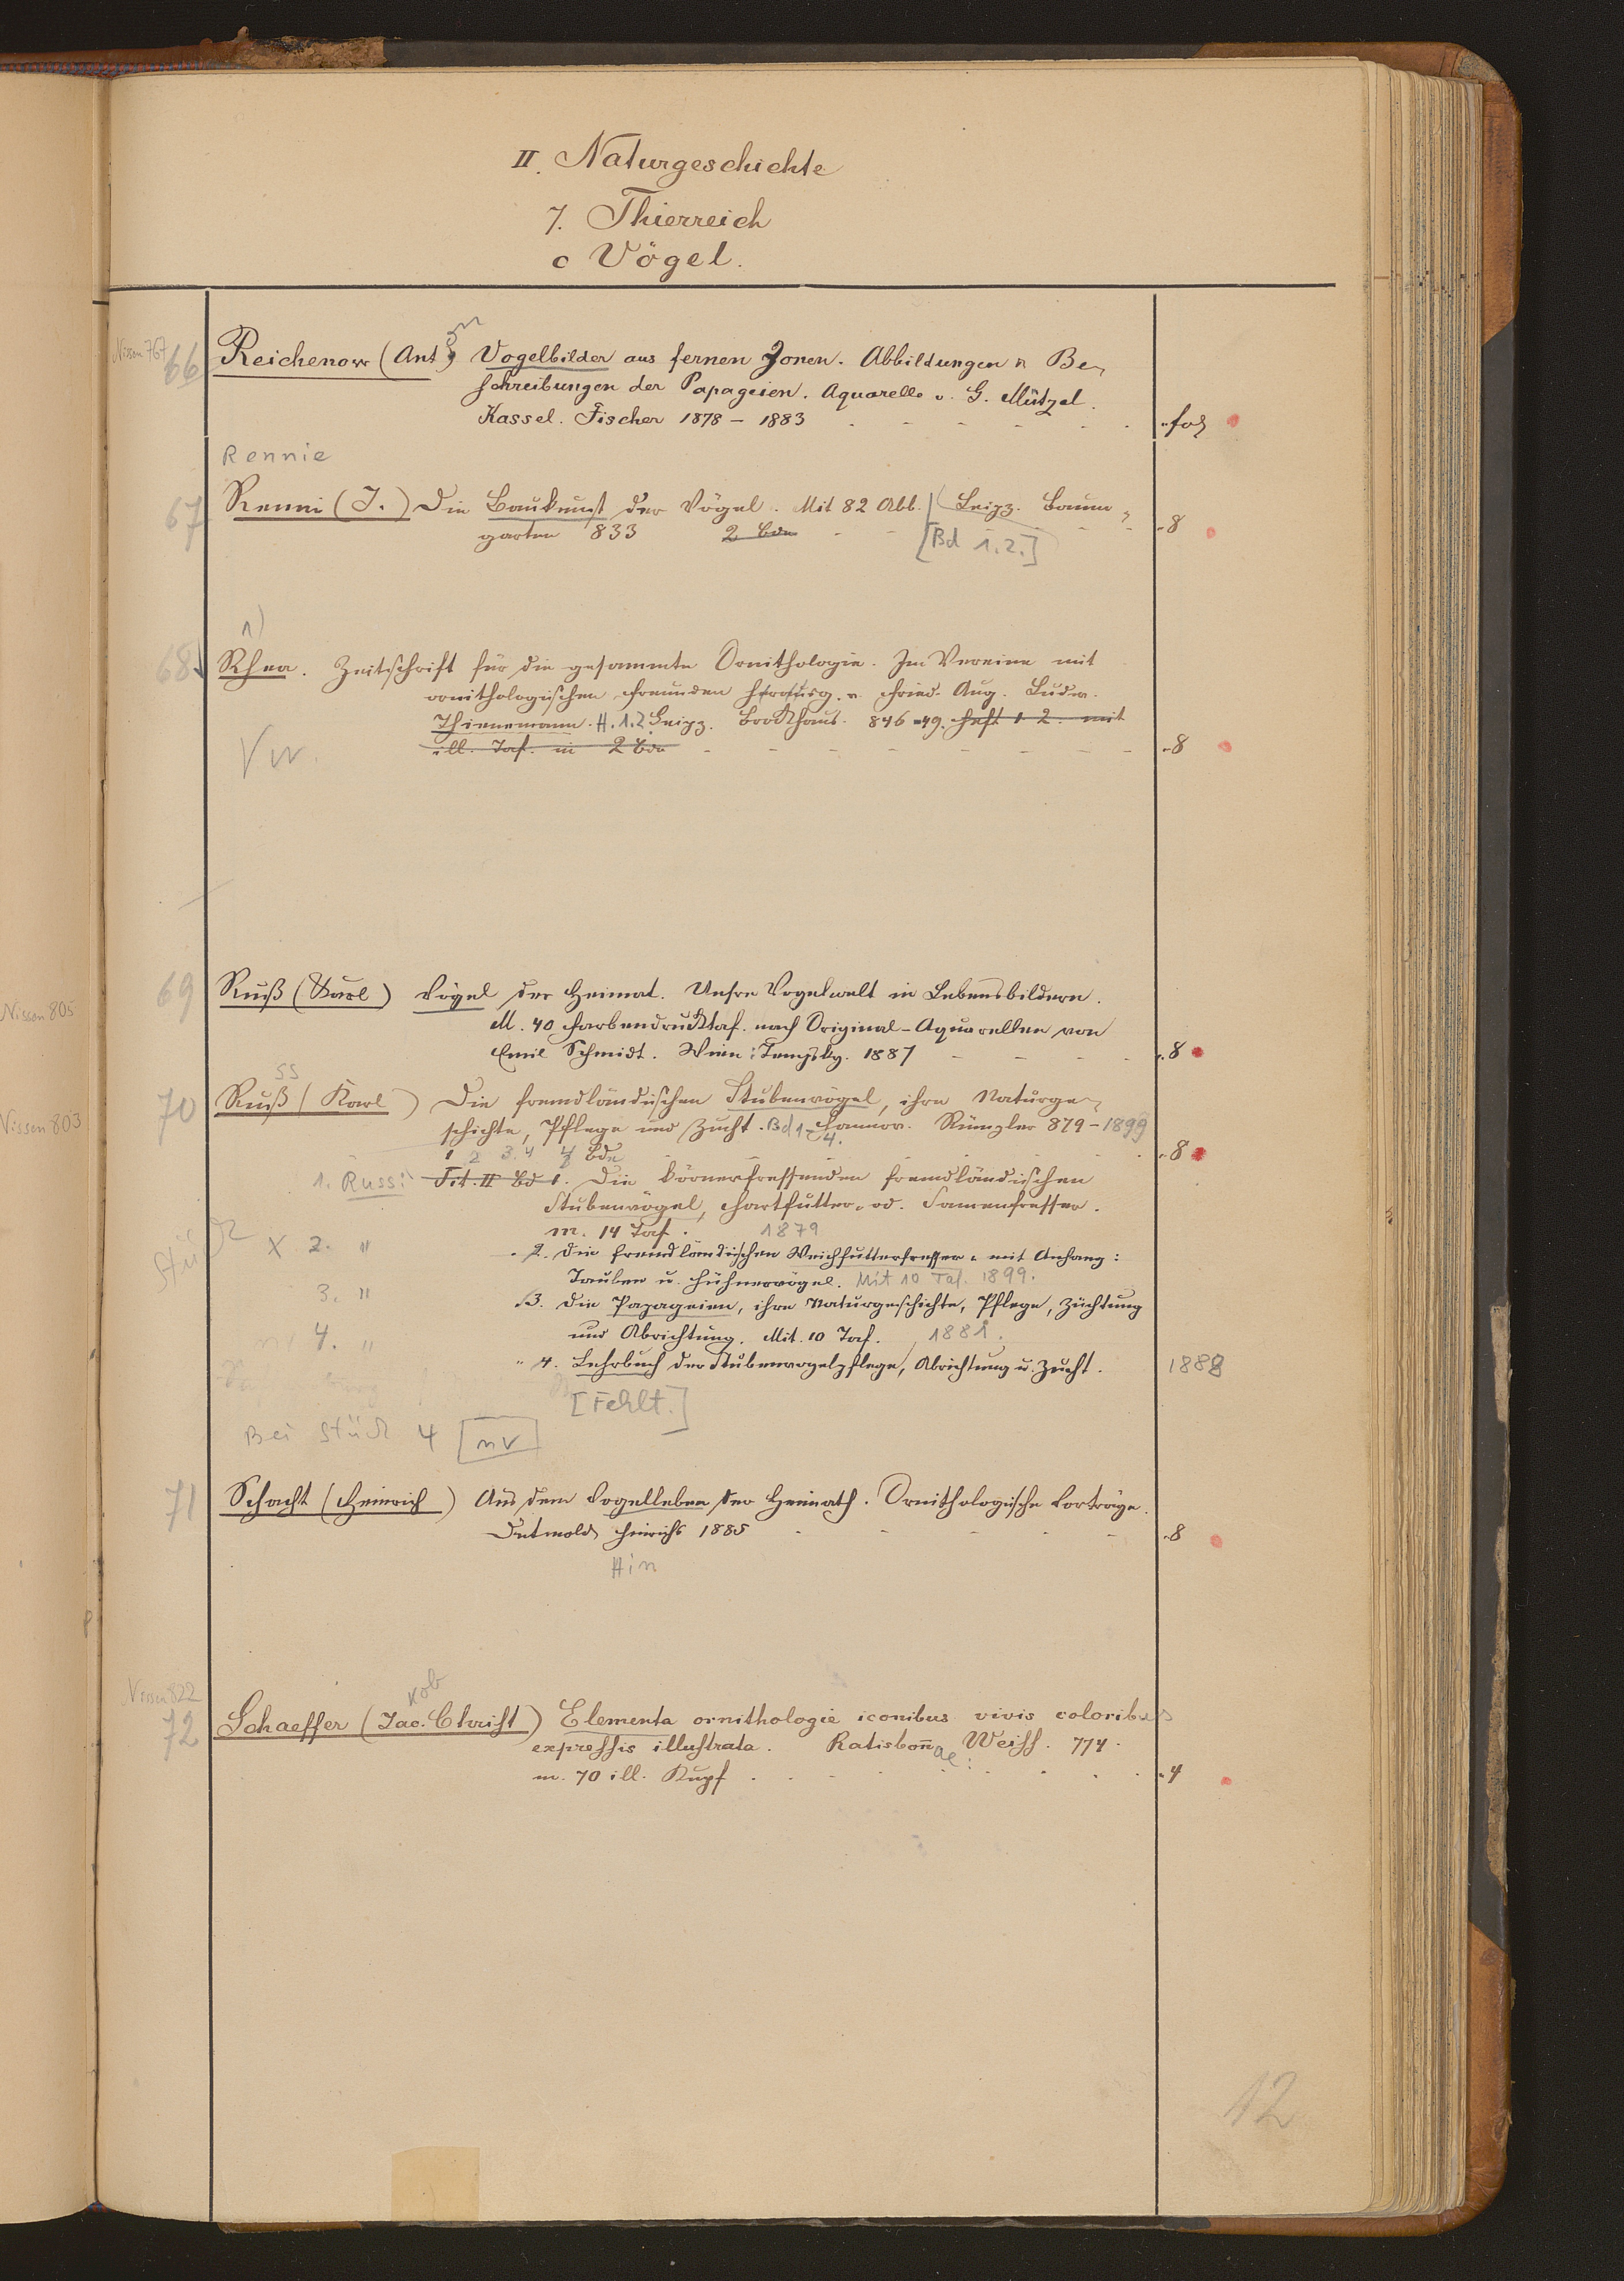 II. Naturgeschichte
7. Thierreich
c Vögel.
Nissen 767
66 Reichenow (Ant.) Vogelbilder aus fernen Zonen. Abbildungen u Be-
schreibungen der Papageien. Aquarelle v. G. Mützel.
Kassel. Fischer 1878 – 1883 fol
Rennie
67 Renni (J.) Die Baukunst der Vögel. Mit 82 Abb. Leipz. Baum-
garten 833 2 Bde [Bd 1.2.] 8
1)
68 Rhea. Zeitschrift für die gesammte Ornithologie. Im Vereine mit
ornithologischen Freunden herausg. v. Fried. Aug. Ludw.
Thienemann. H. 1.2 Leipz. Brockhaus. 846-49. Heft 1 2. mit
ill. Taf. in 2 Bde 8
Vw.
Nissen 805
69 Ruß (Karl) Vögel der Heimat. Unsre Vogelwelt in Lebensbildern.
M. 40 Farbendrucktaf. nach Original-Aquarellen von
Emil Schmidt. Wien: Tempsky. 1887 8
ss
Nissen 803
70 Ruß (Karl) Die fremdländischen Stubenvögel, ihre Naturge-
schichte, Pflege und Zucht. Bd 1-4. Hannov. Rümpler 879-1899
1 2 3. 4 4 Bde 8
1. Russ: Tit. II Bd 1. Die körnerfressenden fremdländischen
Stubenvögel, Hartfutter- od. Samenfresser.
m. 14 Taf. 1879
Stück X 2. " 2. Die fremdländischen Weichfutterfresser mit Anhang:
Tauben u. Hühnervögel. Mit 10 Taf. 1899.
3. " 3. Die Papageien, ihre Naturgeschichte, Pflege, Züchtung
und Abrichtung. Mit. 10 Taf. 1881.
4. " " 4. Lehrbuch der Stubenvogelpflege, Abrichtung u. Zucht. 1888
[Fehlt.]
Bei Stück 4 [nv]
71 Schacht (Heinrich) Aus dem Vogelleben der Heimath. Ornithologische Vorträge.
Detmold Hinrichs 1885 8
Hin
Nissen 822
kob
72 Schaeffer (Jac. Christ) Elementa ornithologie iconibus vivis coloribus
expressis illustrata. Ratisbonae: Weiss. 774.
m. 70 ill. Kupf 4
12